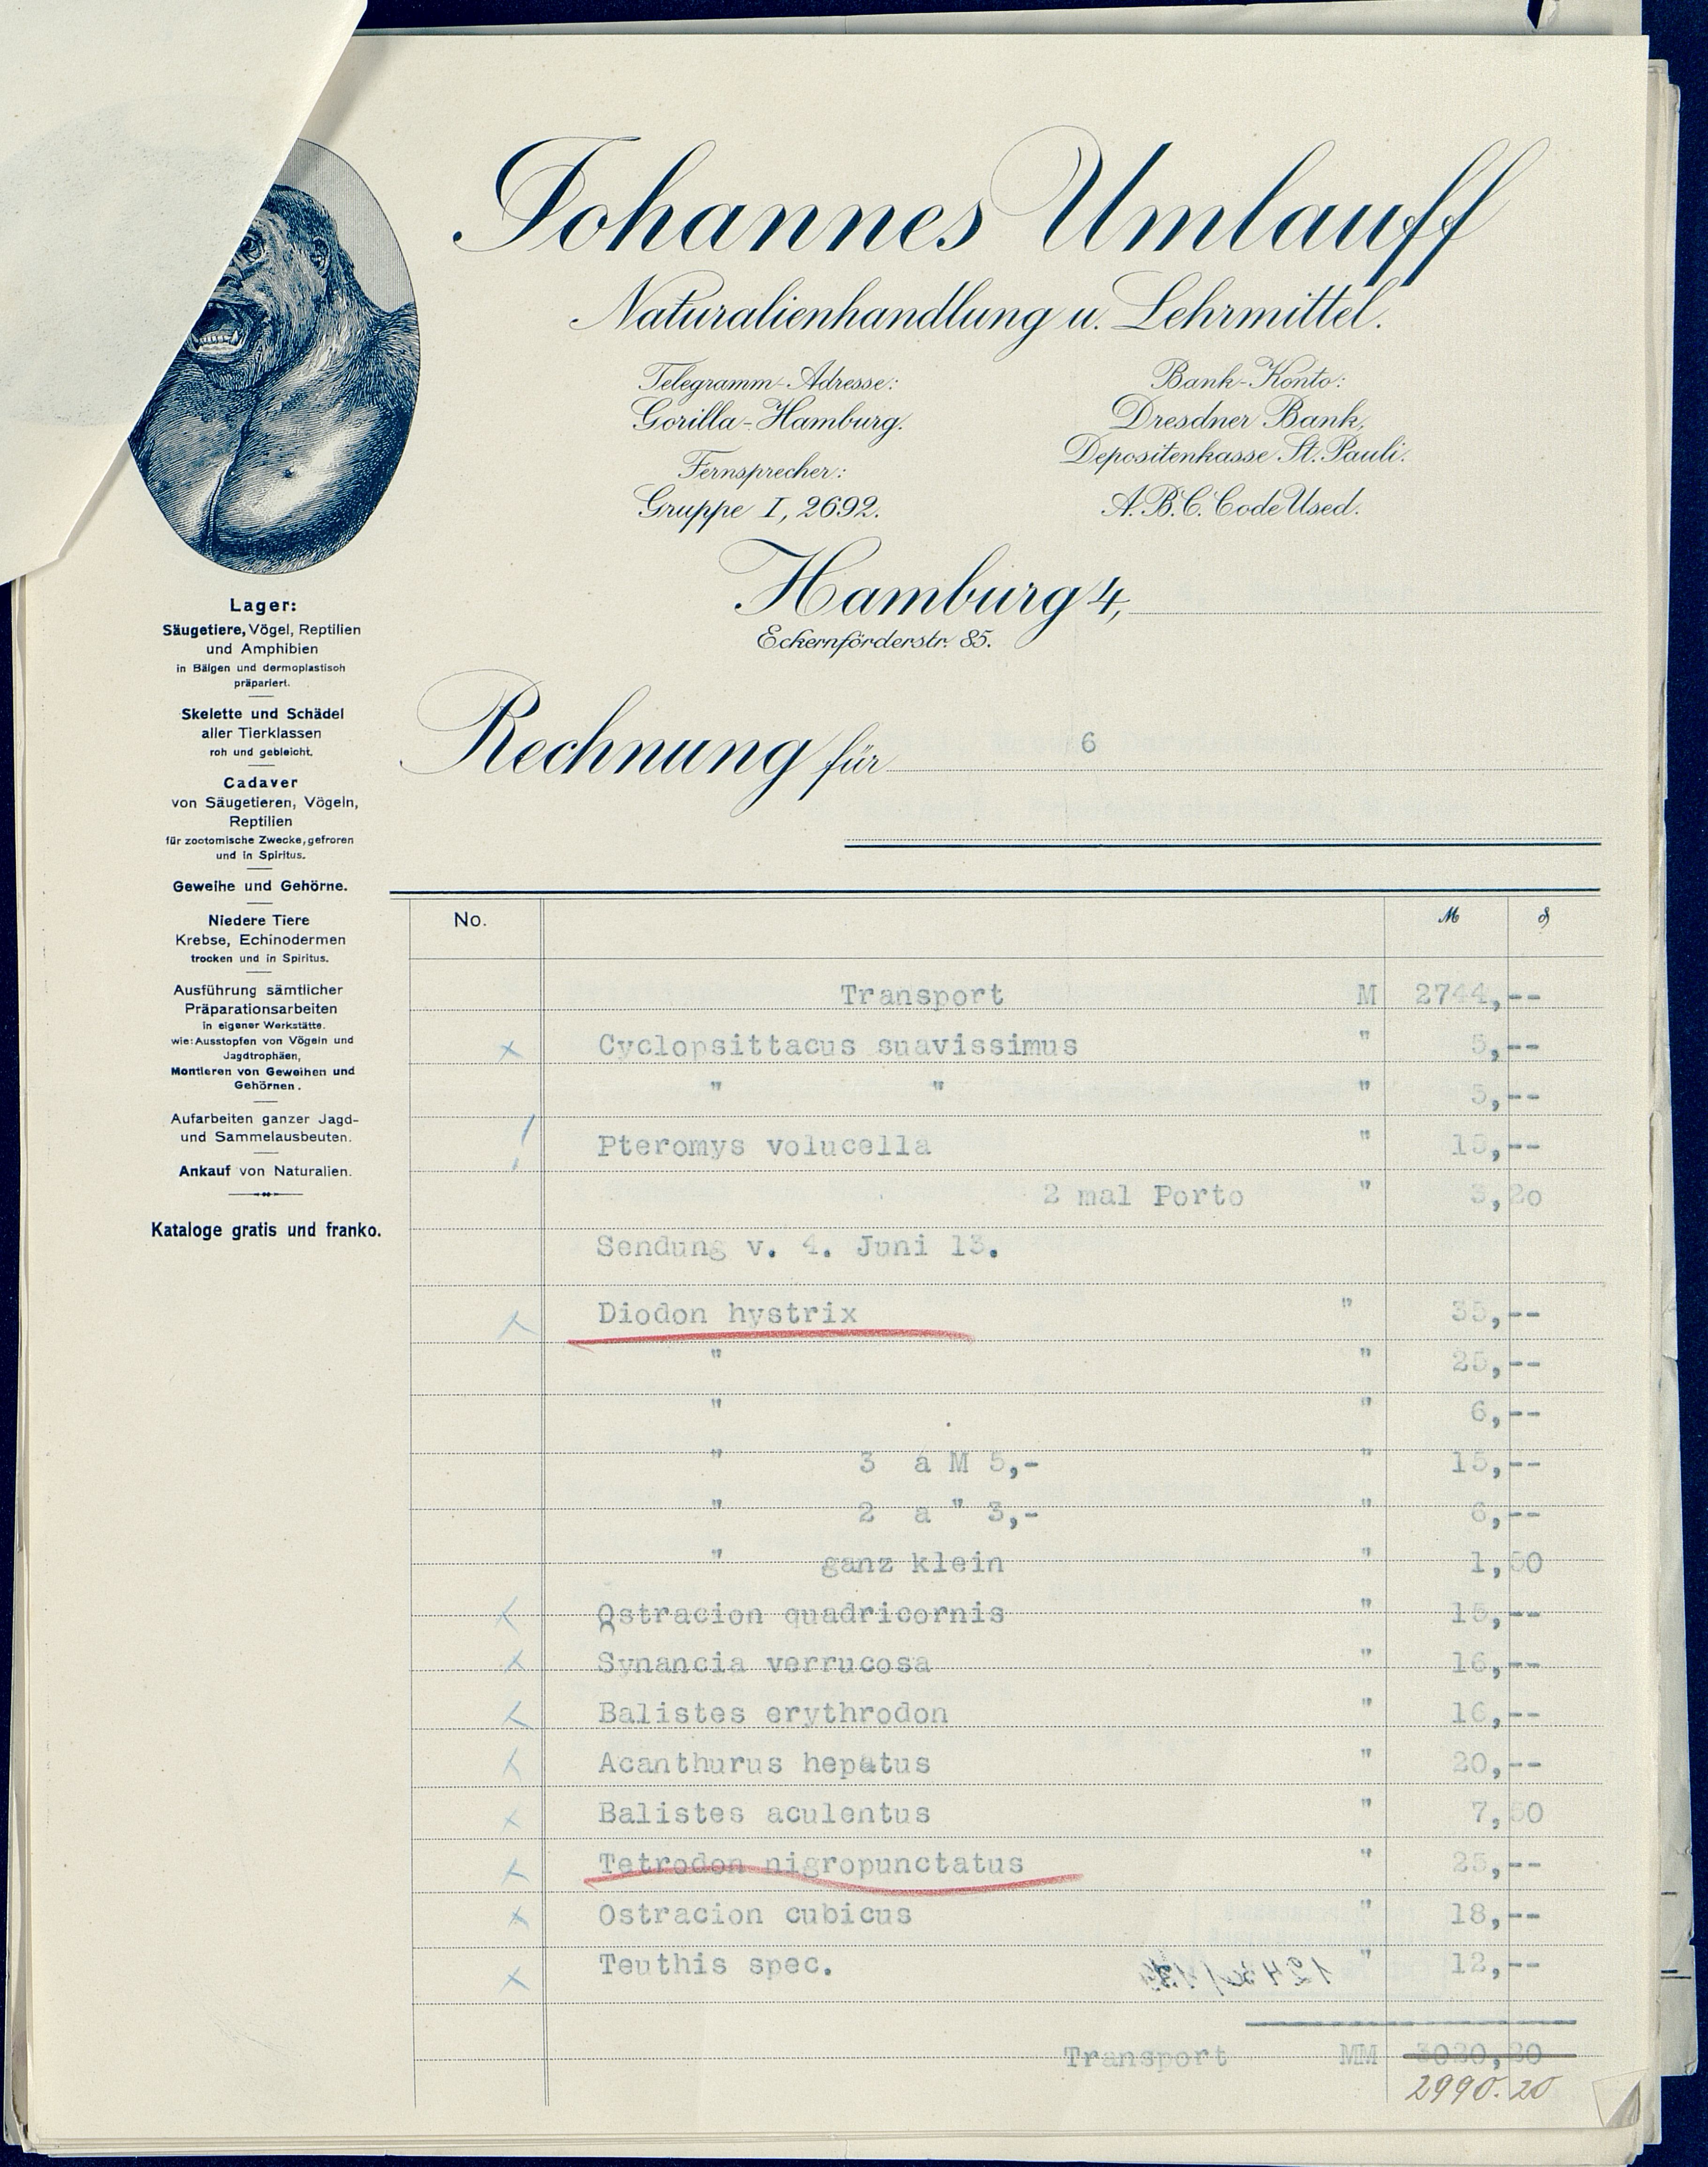 Johannes Umlauff
Naturalienhandlung u. Lehrmittel.
Telegramm-Adresse:
Gorilla-Hamburg.
Fernsprecher:
Gruppe I, 2692.
Bank-Konto:
Dresdner Bank,
Depositenkasse St. Pauli.
A.B.C. Code Used.
Hamburg 4,
Eckernförderstr. 85.
Lager:
Säugetiere, Vögel, Reptilien
und Amphibien
in Bälgen und dermoplastisch
präpariert.
Skelette und Schädel
aller Tierklassen
roh und gebleicht.
Cadaver
von Säugetieren, Vögeln,
Reptilien
für zootomische Zwecke, gefroren
und in Spiritus.
Geweihe und Gehörne.
Niedere Tiere
Krebse, Echinodermen
trocken und in Spiritus.
Ausführung sämtlicher
Präparationsarbeiten
in eigener Werkstätte.
wie: Ausstopfen von Vögeln und
Jagdtrophäen,
Montieren von Geweihen und
Gehörnen.
Aufarbeiten ganzer Jagd-
und Sammelausbeuten.
Ankauf von Naturalien.
Kataloge gratis und franko.
Rechnung für 6
No. M ₰
Transport M 2744,--
x Cyclopsittacus suavissimus " 5,--
" " " 5,--
/ Pteromys volucella " 15,--
2 mal Porto " 3,20
Sendung v. 4. Juni 13.
x Diodon hystrix " 35,--
" " 25,--
" " 6,--
" 3 a M 5,- " 15,--
" 2 a " 3,- " 6,--
" ganz klein " 1,50
x Ostracion quadricornis " 15,--
x Synancia verrucosa " 16,--
x Balistes erythrodon " 16,--
x Acanthurus hepatus " 20,--
x Balistes aculentus " 7,50
x Tetrodon nigropunctatus " 25,--
x Ostracion cubicus " 18,--
x Teuthis spec. " 12,--
Transport MM
2990.20